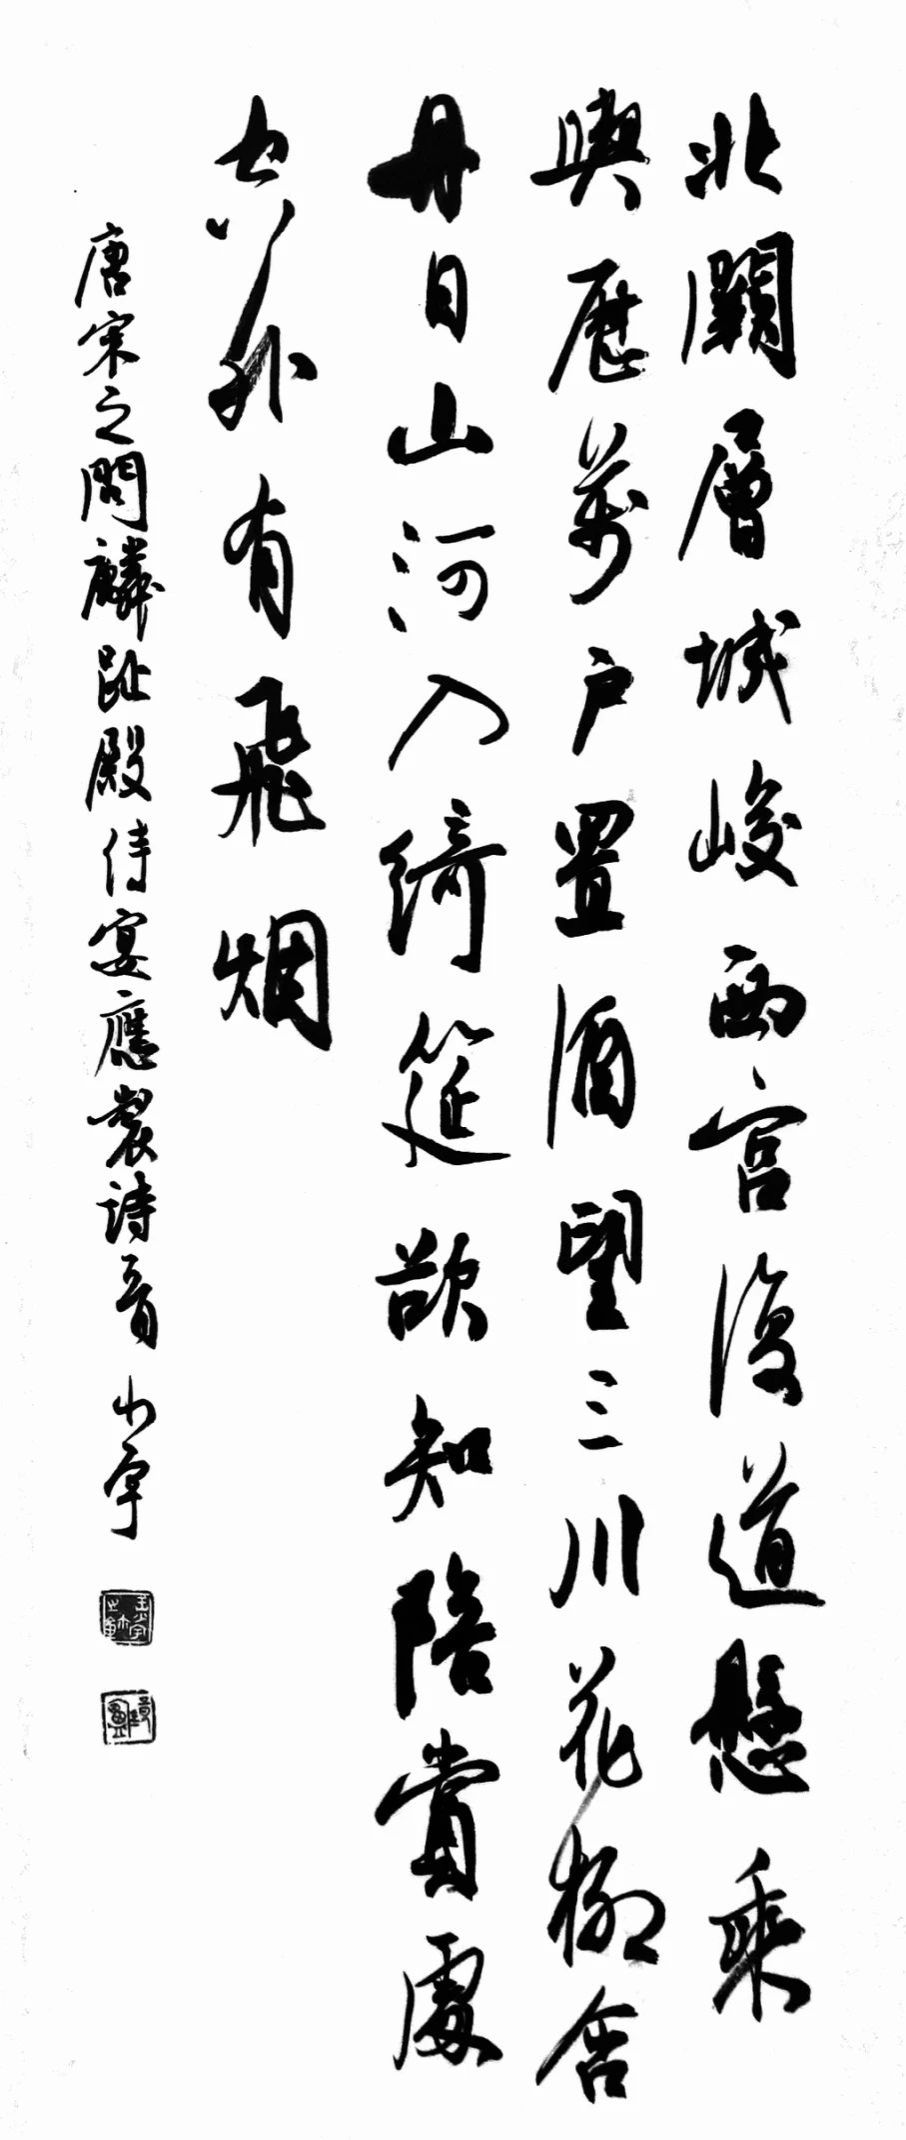 北闕層城峻西宮復道懸乘
輿歷萬户置酒望三川花柳含
丹日山河入綺筵欲知陪賞處
空外有飛烟
唐宋之問麟趾殿侍宴應製詩一首